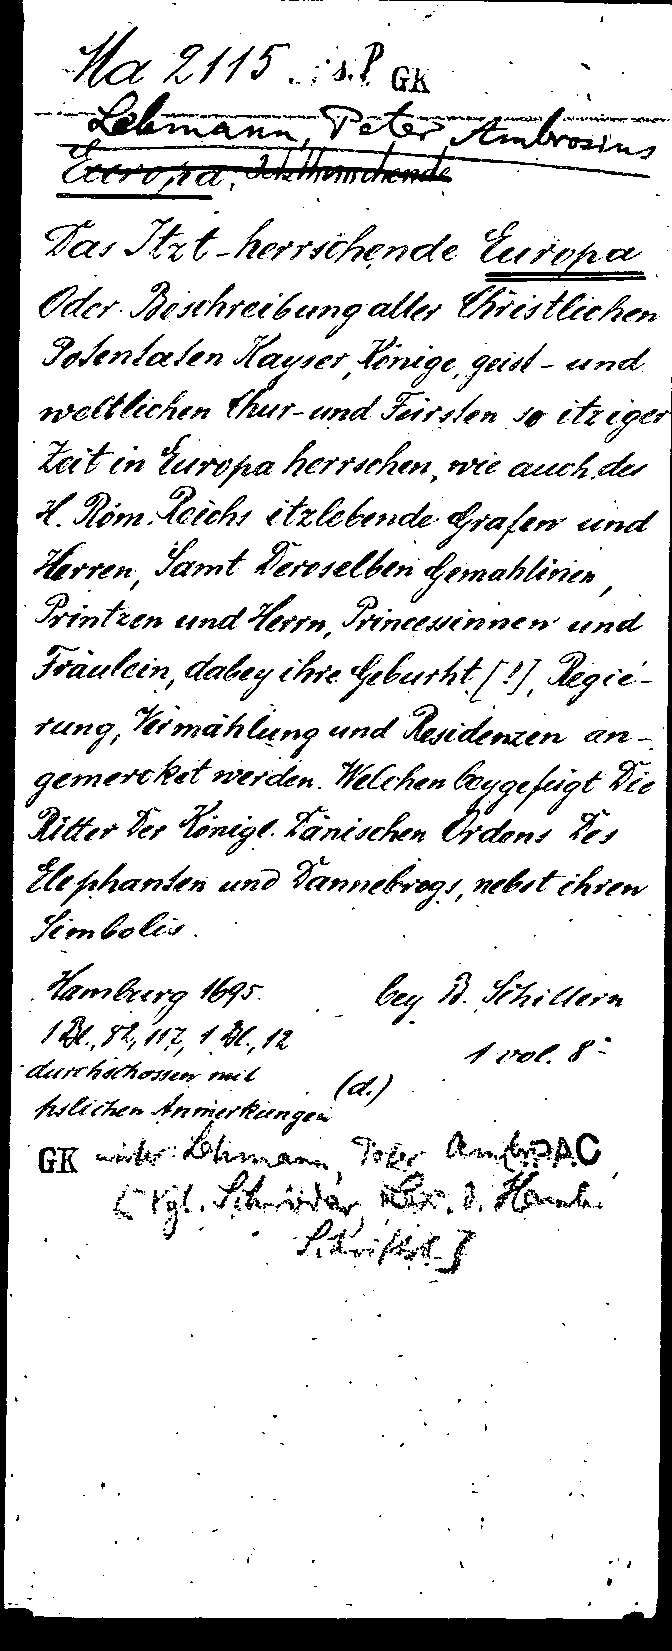 Ma 2115 s. P. GK
Lehmann, Peter Ambrosius
Europa, Itztherrschende
Das Itzt-herrschende Europa
Oder Beschreibung aller Christlichen
Potentaten Kayser, Könige, geist- und
weltlichen Chur- und Fürsten so itziger
Zeit in Europa herrschen, wie auch des
H. Röm. Reichs itzlebende Grafen und
Herren, Samt Deroselben Gemahlinen,
Printzen und Herrn, Princessinnen und
Fräulein, dabey ihre Geburht [!], Regie-
rung, Vermählung und Residenzen an-
gemercket werden. Welchen beygefügt Die
Ritter Der Königl. Dänischen Ordens Des
Elephanten und Dannebrogs, nebst ihren
Simbolis.
Hamburg 1695. bey B. Schillern
1 Bl., 82, 117, 1 Bl., 12
1 vol. 8°
durchschossen mit (d.)
hslichen Anmerkungen
GK unter Lehmann, Peter Ambr. PAC
[Vgl. Schröder, Lex. d. Hamb.
Schriftst.]